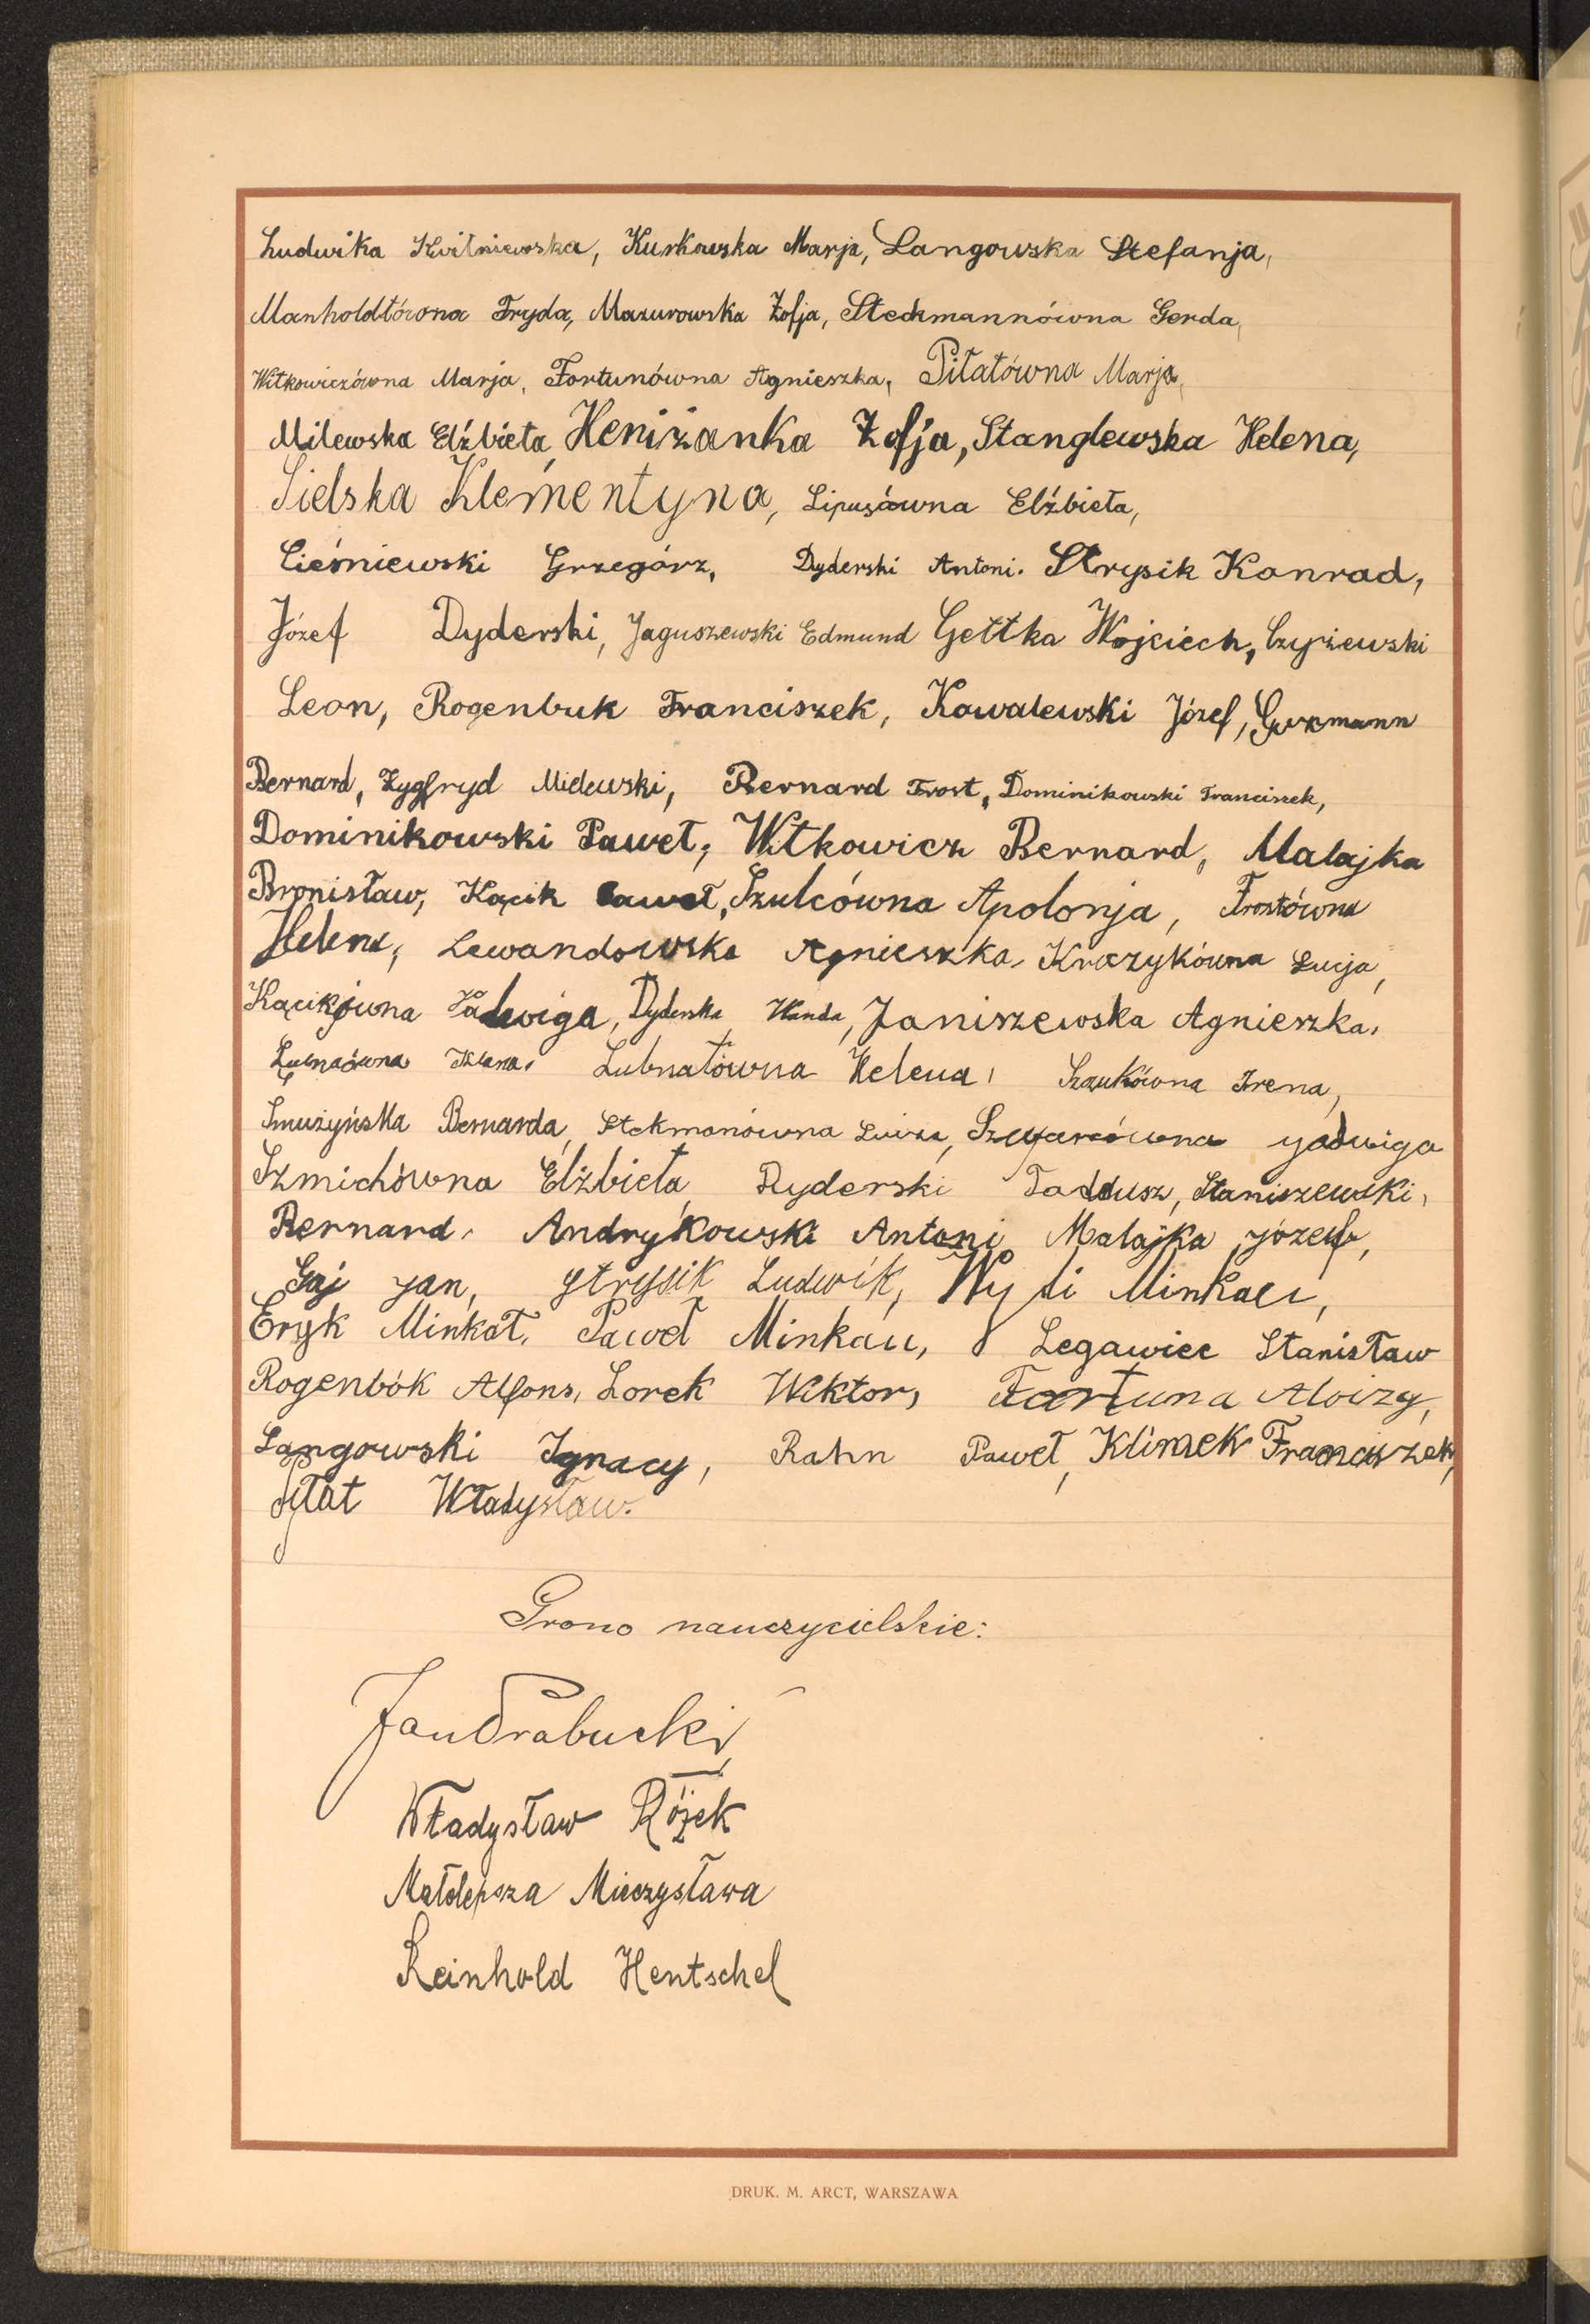 Ludwika Kwitniewska, Kurkowska Marja, Langowska Stefanja,
Manholdtówna Fryda, Mazurowska Zofja, Steckmannówna Gerda,
Witkowiczówna Marja, Fortunówna Agnieszka, Piłatówna Marja,
Milewska Elźbieta, Heniżanka Zofja, Stanglewska Helena,
Sielska Klementyna, Lipusówna Elźbieta,
Cieśniewski Grzegórz, Dyderski Antoni. Strysik Konrad,
Józef Dyderski, Jaguszewski Edmund Gettka Wojciech, Czyżewski
Leon, Rogenbuk Franciszek, Kowalewski Józef, Guzmann
Bernard, Zygfryd Milewski, Bernard Frost, Dominikowski Franciszek,
Dominikowski Paweł, Witkowicz Bernard, Malajka
Bronisław, Kącik Paweł, Szulcówna Apolonja, Frostówna
Helena, Lewandowska Agnieszka, Kraczykówna Łucja,
Kącikówna Jadwiga, Dyderska Wanda, Janiszewska Agnieszka,
Lubnatówna Helena, Szczukówna Irena,
Smużyńska Bernarda, Stekmanówna Luiza, Jadwiga
Szmichówna Elżbieta, Dyderski Taddusz, Staniszewski,
Bernard, Andrykowski Antoni Malajka Józef,
Gaj Jan, Stryssik Ludwik, Minkałi,
Eryk Minkat, Paweł Minkau, Legawiec Stanisław
Rogenbók Alfons, Lorek Wiktor, Fortuna Aloizy,
Langowski Ignacy, Rahn Paweł, Klimek Franciszek,
Piłat Władysław.
Grono nauczycielskie:
Jan Grabucki
Władysław Różek
Małolepsza Mieczysława
Reinhold Hentschel
DRUK. M. ARCT, WARSZAWA